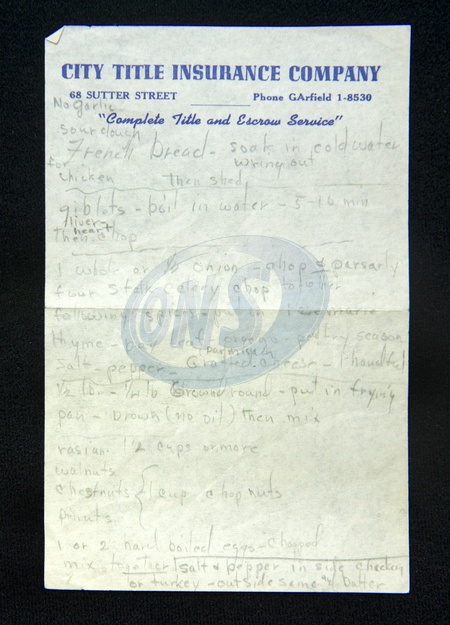 CITY TITLE INSURANCE COMPANY
68 SUTTER STREET Phone GArfield 1-8530
"Complete Title and Escrow Service"
No Garlic
sour dough
French Bread - soak in cold water
wring out
for chicken then shed
giblets - boil in water - 5-10 min
livers heart
then chop
1 whole or 1/2 onion - chop & parsarly
four stalk celery chop together
following spices - put in
thyme - bay leaf poultry season
parmesan
salt - pepper - Grated cheese - 1 handful
1/2 lb. - Ground round - put in frying
pan - brown (no oil) then mix
rasian 1 1/2 cups or more
walnuts
chestnuts 1 cup chop nuts
pinuts
1 or 2 hard boiled eggs - chopped
mix together salt & pepper in side chicken
or turkey - outside same butter
ONS